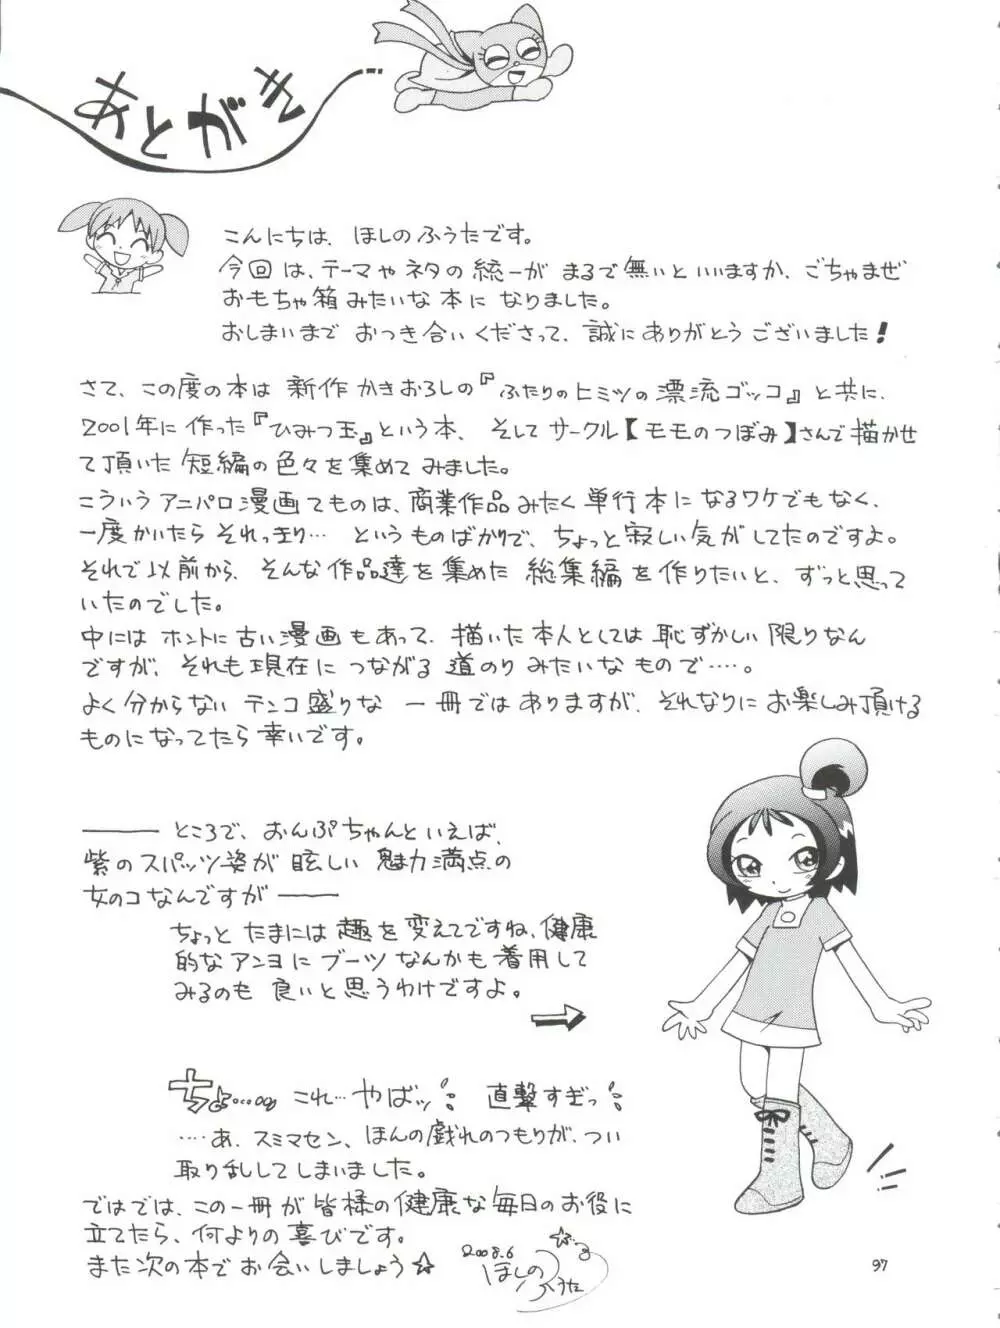 あとがき
こんにちは、ほしのふうたです。
今回は、テーマやネタの統一が まるで無いといいますか、ごちゃまぜ
おもちゃ箱みたいな本に なりました。
おしまいまで おつき合いくださって、誠にありがとうございました!
さて、この度の本は 新作 かきおろしの『ふたりのヒミツの漂流ゴッコ』と共に、
2001年に作った『ひみつ玉』という本、そして サークル【モモのつぼみ】さんで描かせ
て頂いた 短編の色々を集めて みました。
こういうアニパロ漫画てものは、商業作品 みたく 単行本に なるワケでもなく、
一度かいたら それっきり… というものばかりで、ちょっと寂しい気が してたのですよ。
それで以前から、そんな作品達を集めた 総集編 を作りたいと、ずっと思って
いたのでした。
中には ホントに古い漫画もあって、描いた本人としては 恥ずかしい限りなん
ですが、それも現在に つながる 道のり みたいな もので……。
よく分からない テンコ盛りな 一冊では ありますが、それなりに お楽しみ頂ける
ものに なってたら 幸いです。
―― ところで、おんぷちゃんといえば、
紫のスパッツ姿が 眩しい 魅力満点の
女のコ なんですが ――
ちょっと たまには 趣を変えてですね、健康
的なアンヨに ブーツ なんかも 着用して
みるのも 良いと思うわけですよ。
ちょ…… これ… やばッ!! 直撃すぎっ!!
……あ、スミマセン、ほんの戯れのつもりが、つい
取り乱してしまいました。
ではでは、この一冊が 皆様の健康な毎日のお役に
立てたら、何よりの喜びです。
また次の本で お会いしましょう☆
2008.6
ほしのふうた
97